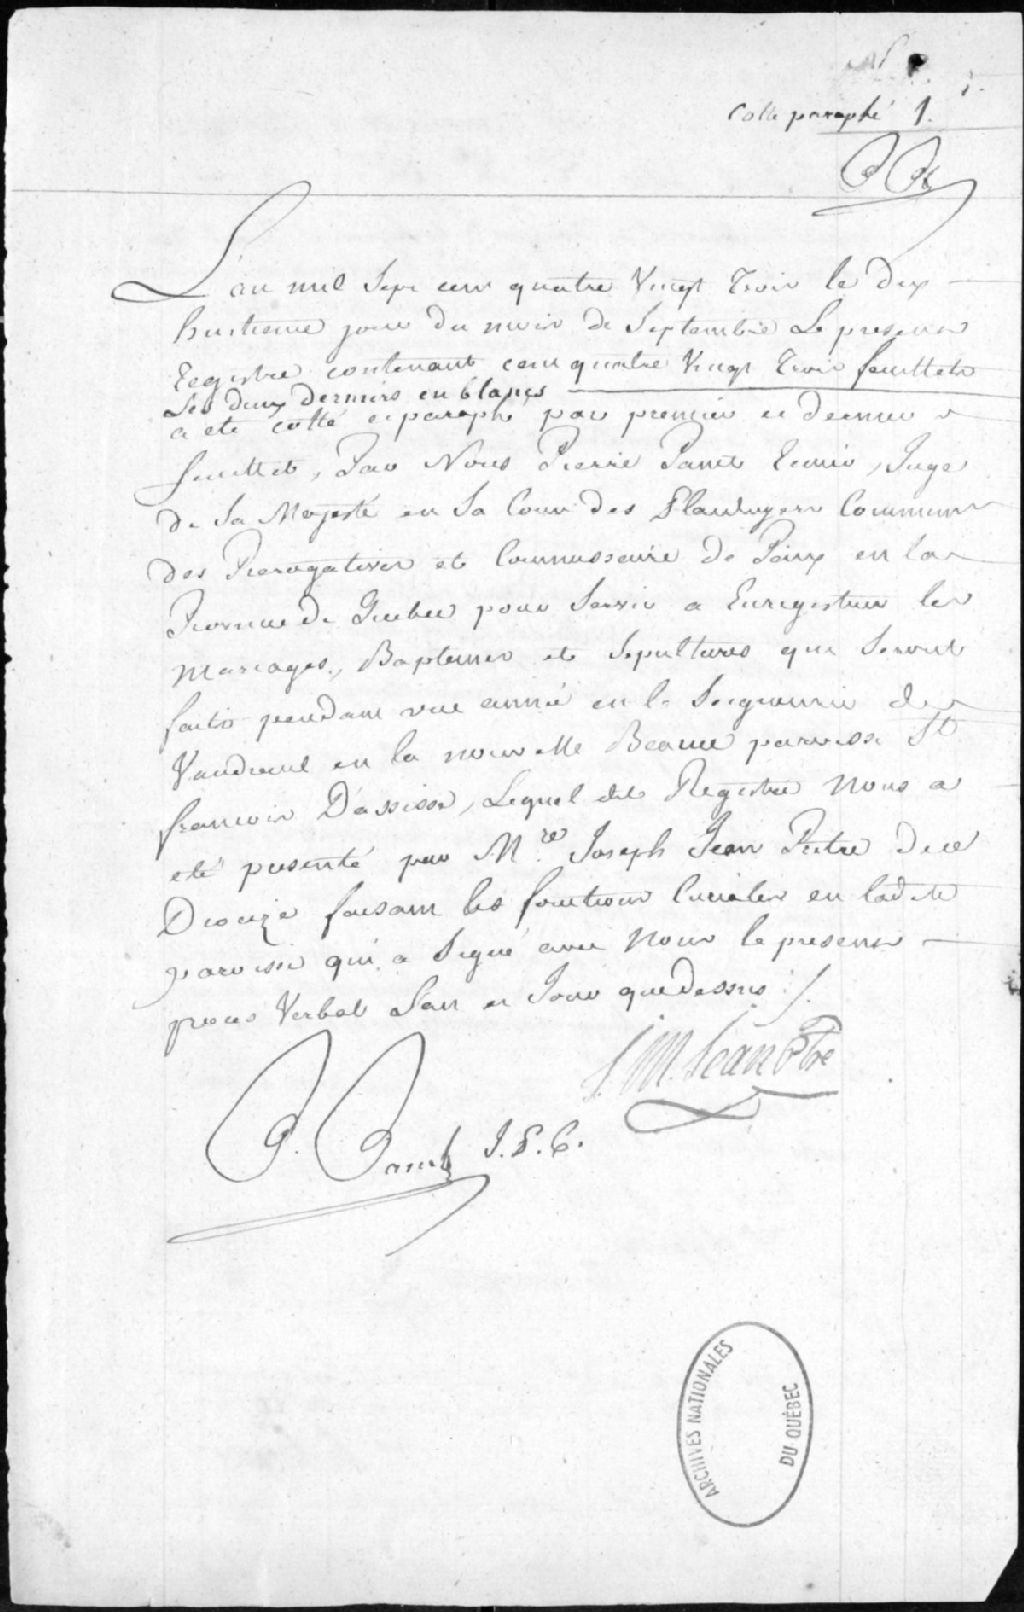 Cotté paraphé 1.
PPt
L'an mil Sept cent quatre Vingt Trois le dix
huitieme jour du mois de Septembre Le present
Registre contenant cent quatre Vingt Trois feuillets
Les deux derniers en blancs
a eté cotté et paraphé par premier et dernier
feuillet, Par Nous Pierre Panet Ecuier, Juge
de Sa Majesté en Sa Cour des Plaidoyers Communs
des Prerogatives et Commissaire de Paix en la
Province de Quebec pour Servir a Enregistrer les
Mariages, Baptemes et Sepultures qui Seront
faits pendant une année en la Seigneurie de
Vaudreuil en la nouvelle Beauce paroisse St
francois D'assisse, Lequel dit Registre Nous a
eté presenté par M.re Joseph Jean Pretre
faisant les fonctions Curiales en ladite
paroisse qui a Signé avec Nous le present
proces Verbal L'an et Jour que dessus ./.
J. M. Jean Ptre
P. Panet J. P. C.
ARCHIVES NATIONALES
DU QUÉBEC